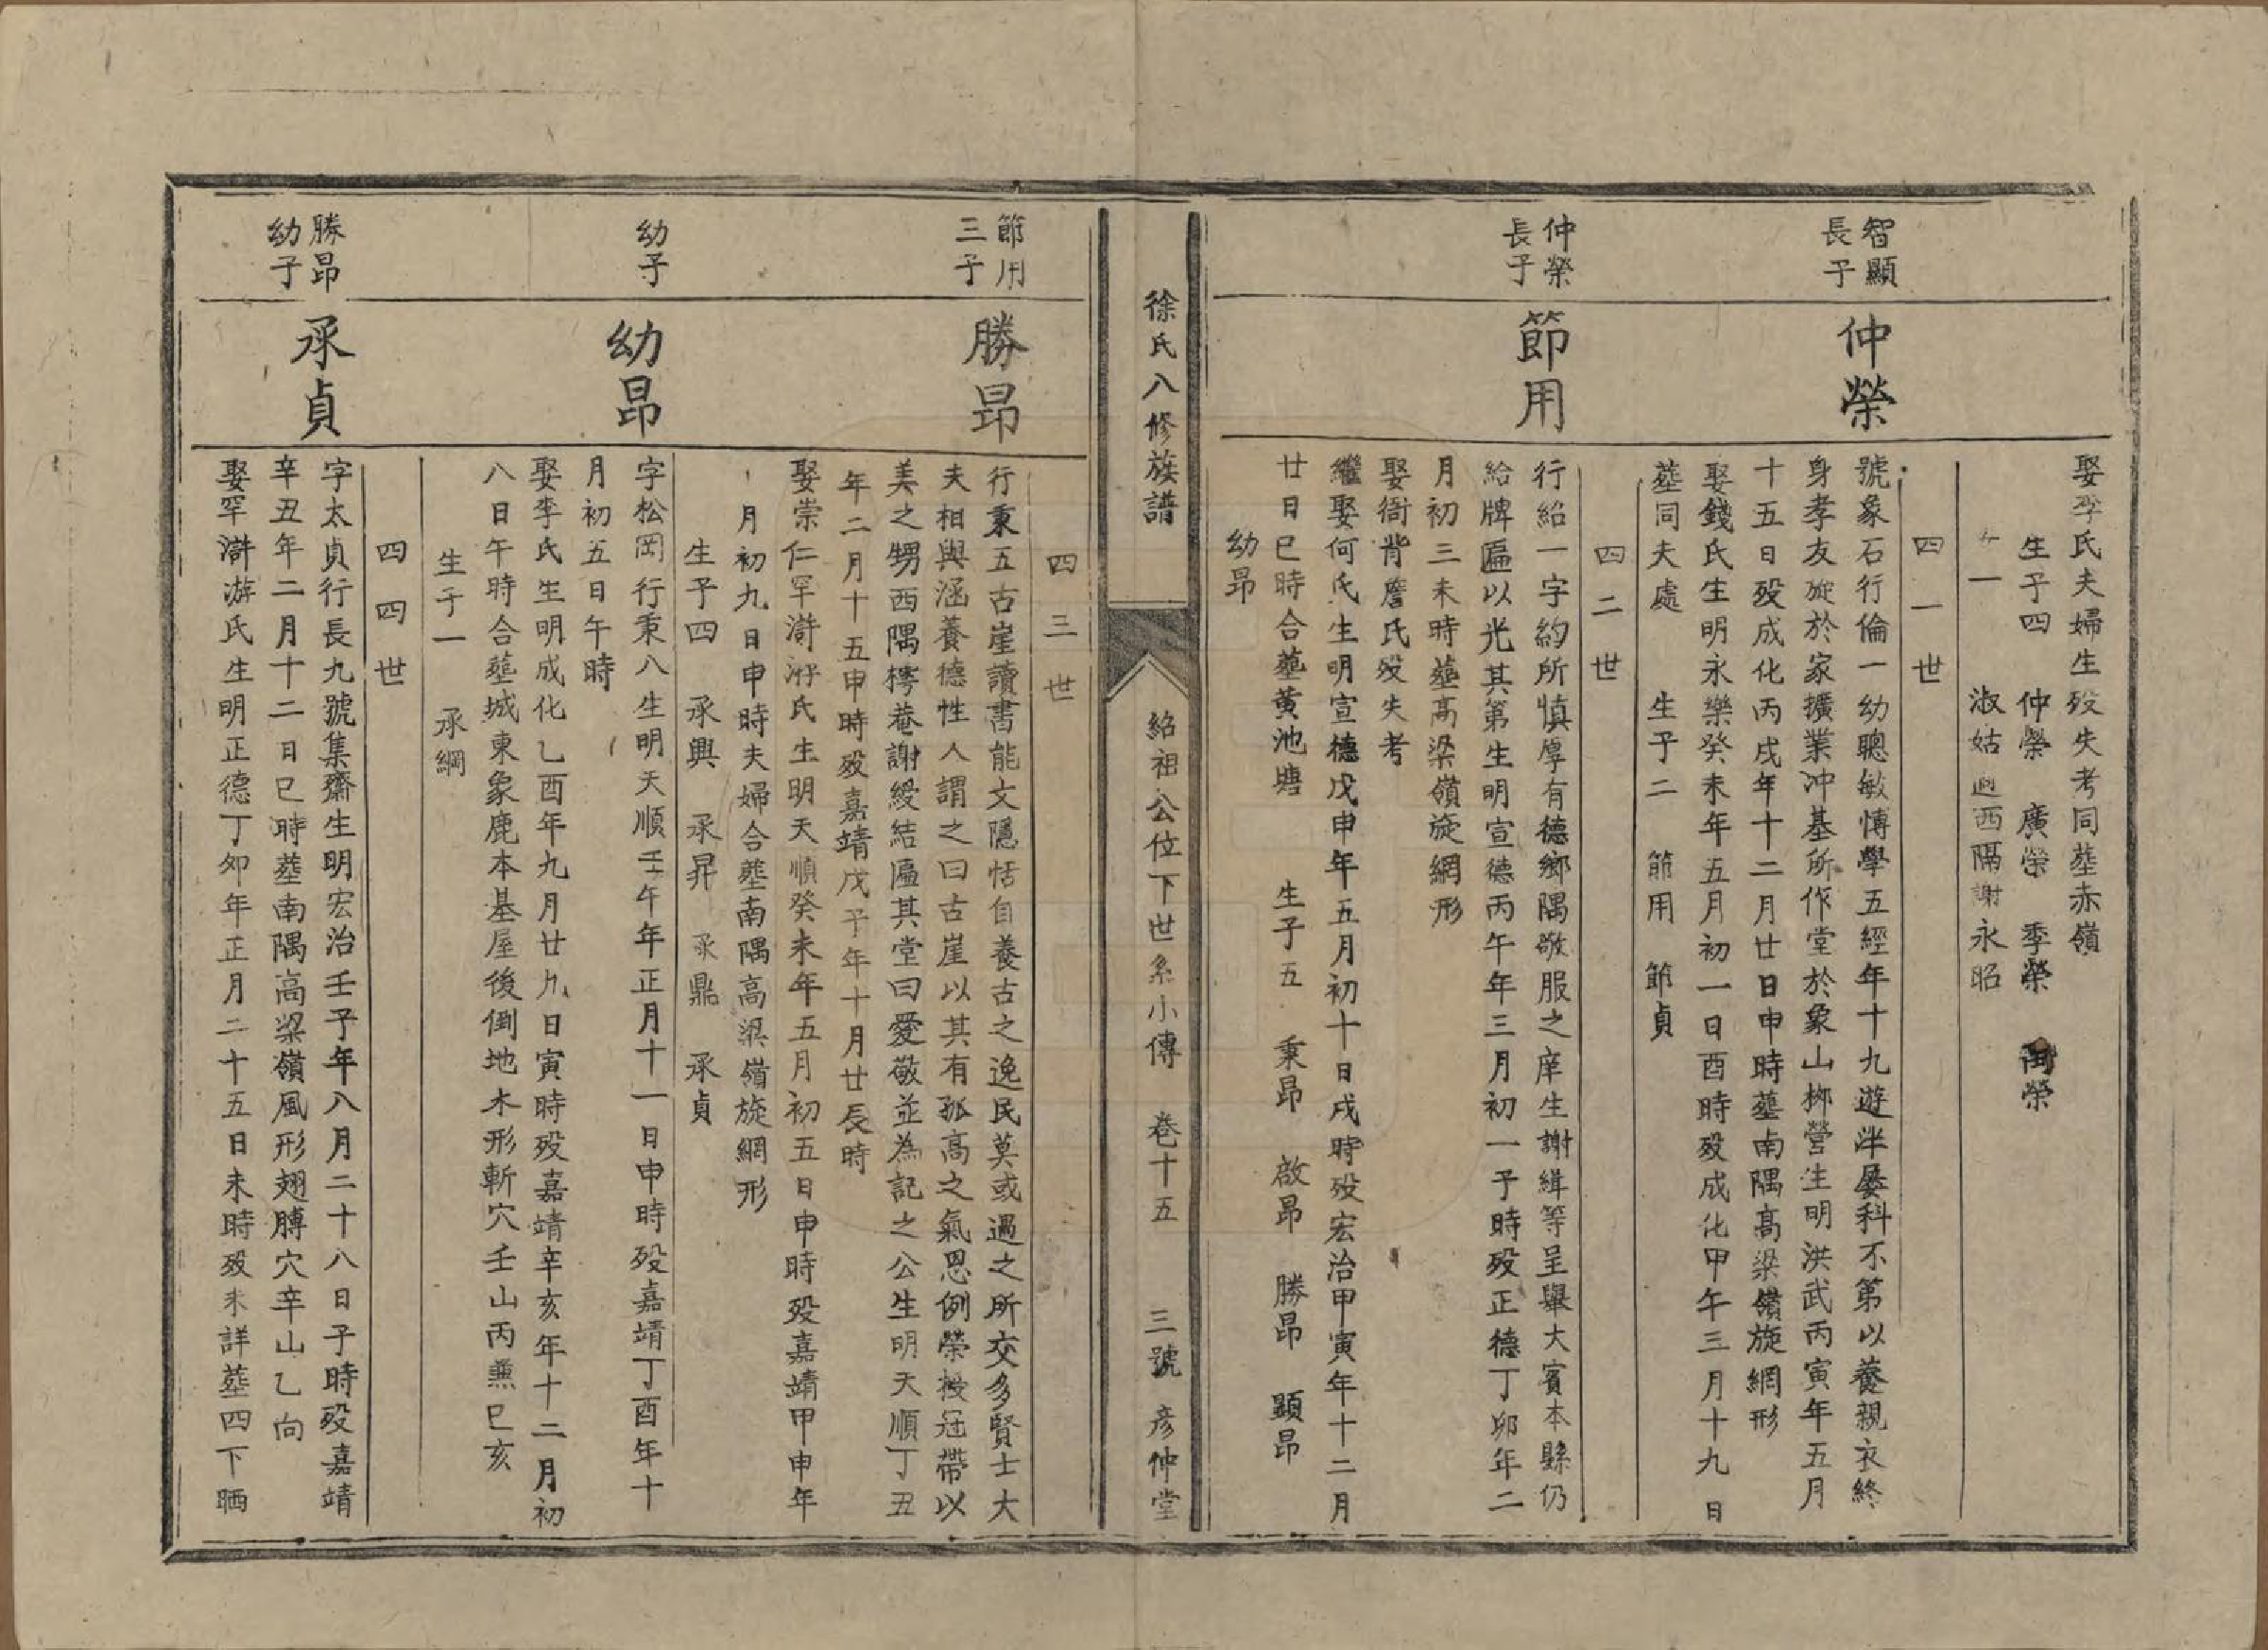 娶李氏夫婦生歿失考同塟赤嶺
生子四　仲榮　廣榮　季榮　榮
女一　淑姑適西隅謝永昭
四一世
智顯
長子
仲榮
號象石行倫一幼聰敏博學五經年十九遊泮屡科不第以養親衣終
身孝友旋於家擴業冲基所作堂於象山栁營生明洪武丙寅年五月
十五日歿成化丙戌年十二月廿日申時塟南隅高梁嶺旋網形
娶錢氏生明永樂癸未年五月初一日酉時歿成化甲午三月十九日
塟同夫處　生子二　節用　節貞
四二世
仲榮
長子
節用
行紹一字約所慎厚有德鄉隅敬服之庠生謝緝等呈舉大賓本縣仍
給牌匾以光其第生明宣德丙午年三月初一子時歿正德丁卯年二
月初三未時塟高梁嶺旋網形
娶衙背詹氏歿失考
繼娶何氏生明宣德戊申年五月初十日戌時歿宏治甲寅年十二月
廿日巳時合塟黄池塘　生子五　秉昂　啟昂　勝昂　顕昂
幼昂
徐氏八修族譜　紹祖公位下世系小傳　卷十五　三號　彦仲堂
四三世
節用
三子
勝昂
行秉五古崖讀書能文隱恬自養古之逸民莫或過之所交多賢士大
夫相與涵養德性人謂之曰古崖以其有孤高之氣恩例榮授冠帶以
美之甥西隅樗菴謝綬結匾其堂曰愛敬並為記之公生明天順丁丑
年二月十五申時歿嘉靖戊子年十月廿辰時
娶崇仁罕滸游氏生明天順癸未年五月初五日申時歿嘉靖甲申年
月初九日申時夫婦合塟南隅高梁嶺旋網形
生子四　承興　承昇　承鼎　承貞
幼子
幼昂
字松岡行秉八生明天順壬午年正月十一日申時歿嘉靖丁酉年十
月初五日午時
娶李氏生明成化乙酉年九月廿九日寅時歿嘉靖辛亥年十二月初
八日午時合塟城東象鹿本基屋後倒地木形斬穴壬山丙兼巳亥
生子一　承綱
四四世
勝昂
幼子
承貞
字太貞行長九號集齋生明宏治壬子年八月二十八日子時歿嘉靖
辛丑年二月十二日巳時塟南隅高梁嶺風形翅膊穴辛山乙向
娶罕滸游氏生明正德丁卯年正月二十五日未時歿未詳塟四下晒